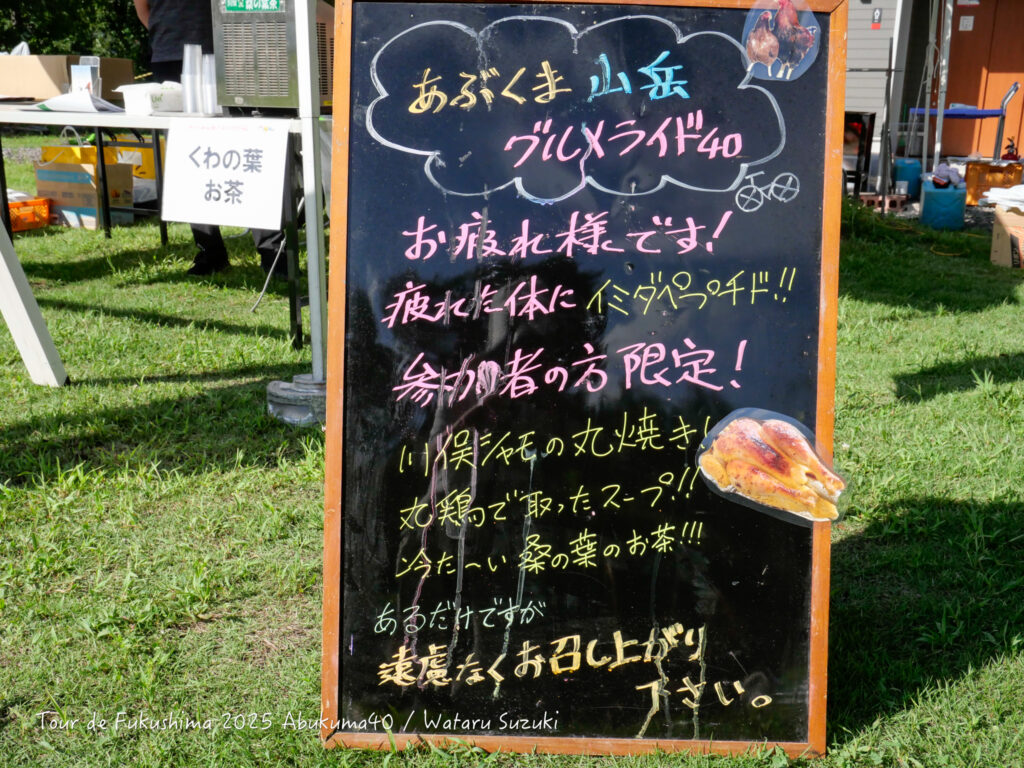 あぶくま 山岳
グルメライド40
お疲れ様です!
疲れた体に イミダペプチド!!
参加者の方限定!
川俣シャモの丸焼き!
丸鶏で取ったスープ!!
冷た〜い 桑の葉のお茶!!!
あるだけですが
遠慮なくお召し上がり
下さい。
くわの葉
お茶
Tour de Fukushima 2025 Abukuma40 / Wataru Suzuki